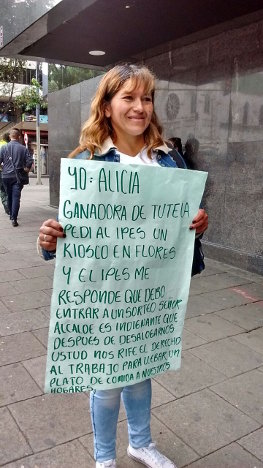 YO: ALICIA
GANADORA DE TUTELA
PEDI AL IPES UN
KIOSCO EN FLORES
Y EL IPES ME
RESPONDE QUE DEBO
ENTRAR A UN SORTEO SEÑOR
ALCALDE ES INDIGNANTE QUE
DESPUES DE DESALOGARNOS
USTUD NOS RIFE EL DERECHO
AL TRABAJO PARA LLEBAR UN
PLATO DE COMIDA A NUESTROS
HOGARES.